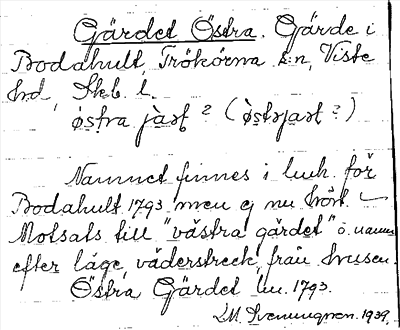 Gärdet Östra. Gärde i
Bodahult, Trökörna s:n, Viste
hrd, Skb. l.
östra jäst ? (östsjast ?)
Namnet finnes i luh. för
Bodahult 1793 men ej nu hört.
Motsats till "västra gärdet" ö. namn
efter läge, väderstreck, från husen.
Östra Gärdet luh. 1793.
D.M. Svenungson. 1939.